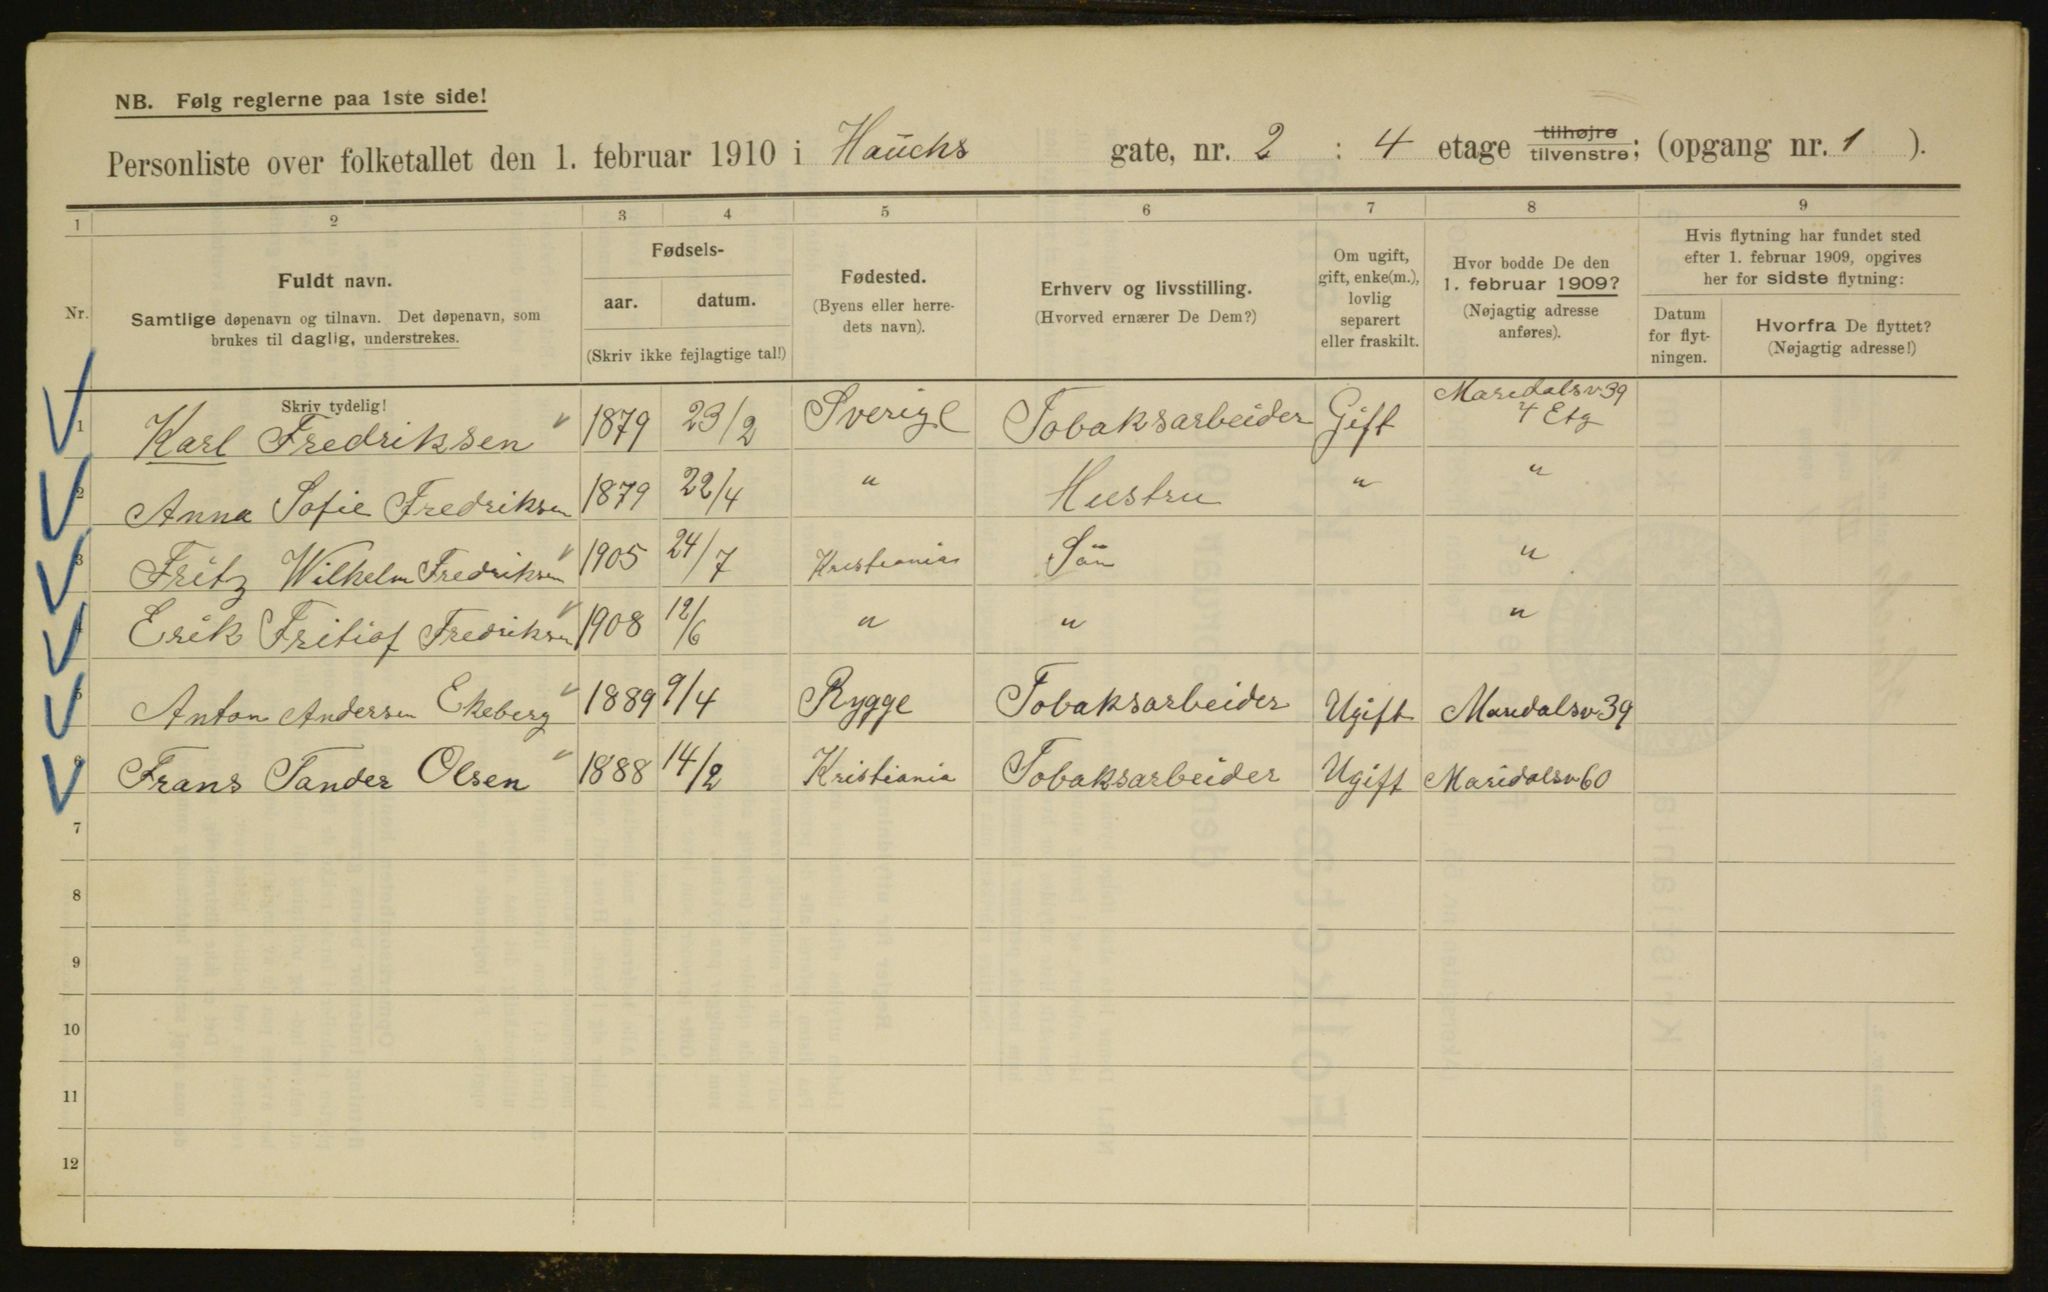 NB. Følg reglerne paa 1ste side!
Personliste over folketallet den 1. februar 1910 i Hauchs gate, nr. 2 : 4 etage tilhøjre tilvenstre; (opgang nr. 1 ).
1 2 3 4 5 6 7 8 9
Nr.
Fuldt navn.
Samtlige døpenavn og tilnavn. Det døpenavn, som
brukes til daglig, understrekes.
Fødsels-
aar. datum.
(Skriv ikke fejlagtige tal!)
Fødested.
(Byens eller herre-
dets navn).
Erhverv og livsstilling.
(Hvorved ernærer De Dem?)
Om ugift,
gift, enke(m.),
lovlig
separert
eller fraskilt.
Hvor bodde De den
1. februar 1909?
(Nøjagtig adresse
anføres).
Hvis flytning har fundet sted
efter 1. februar 1909, opgives
her for sidste flytning:
Datum
for flyt-
ningen.
Hvorfra De flyttet?
(Nøjagtig adresse!)
Skriv tydelig!
1 Karl Fredriksen " 1879 23/2 Sverige Tobaksarbeider Gift Maridalsv 39
4 Etg
2 Anna Sofie Fredriksen 1879 22/4 " Hustru " "
3 Fritz Wilhelm Fredriksen " 1905 24/7 Kristiania Sön "
4 Erik Fritiof Fredriksen " 1908 12/6 " " "
5 Anton Andersen Ekeberg " 1889 9/4 Rygge Tobaksarbeider Ugift Maridalsv 39
6 Frans Tander Olsen " 1888 14/2 Kristiania Tobaksarbeider Ugift Maridalsv 60
7
8
9
10
11
12